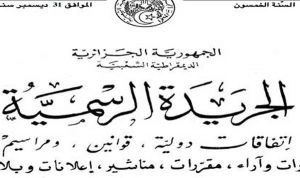 السنة الخمسون
الموافق 31 ديسمبر سنة
الجمهورية الجزائرية
الديمقراطية الشعبية
الجريدة الرسمية
إتفاقات دولية ، قوانين ، ومراسيم
وآراء ، مقررات ، مناشير ، إعلانات